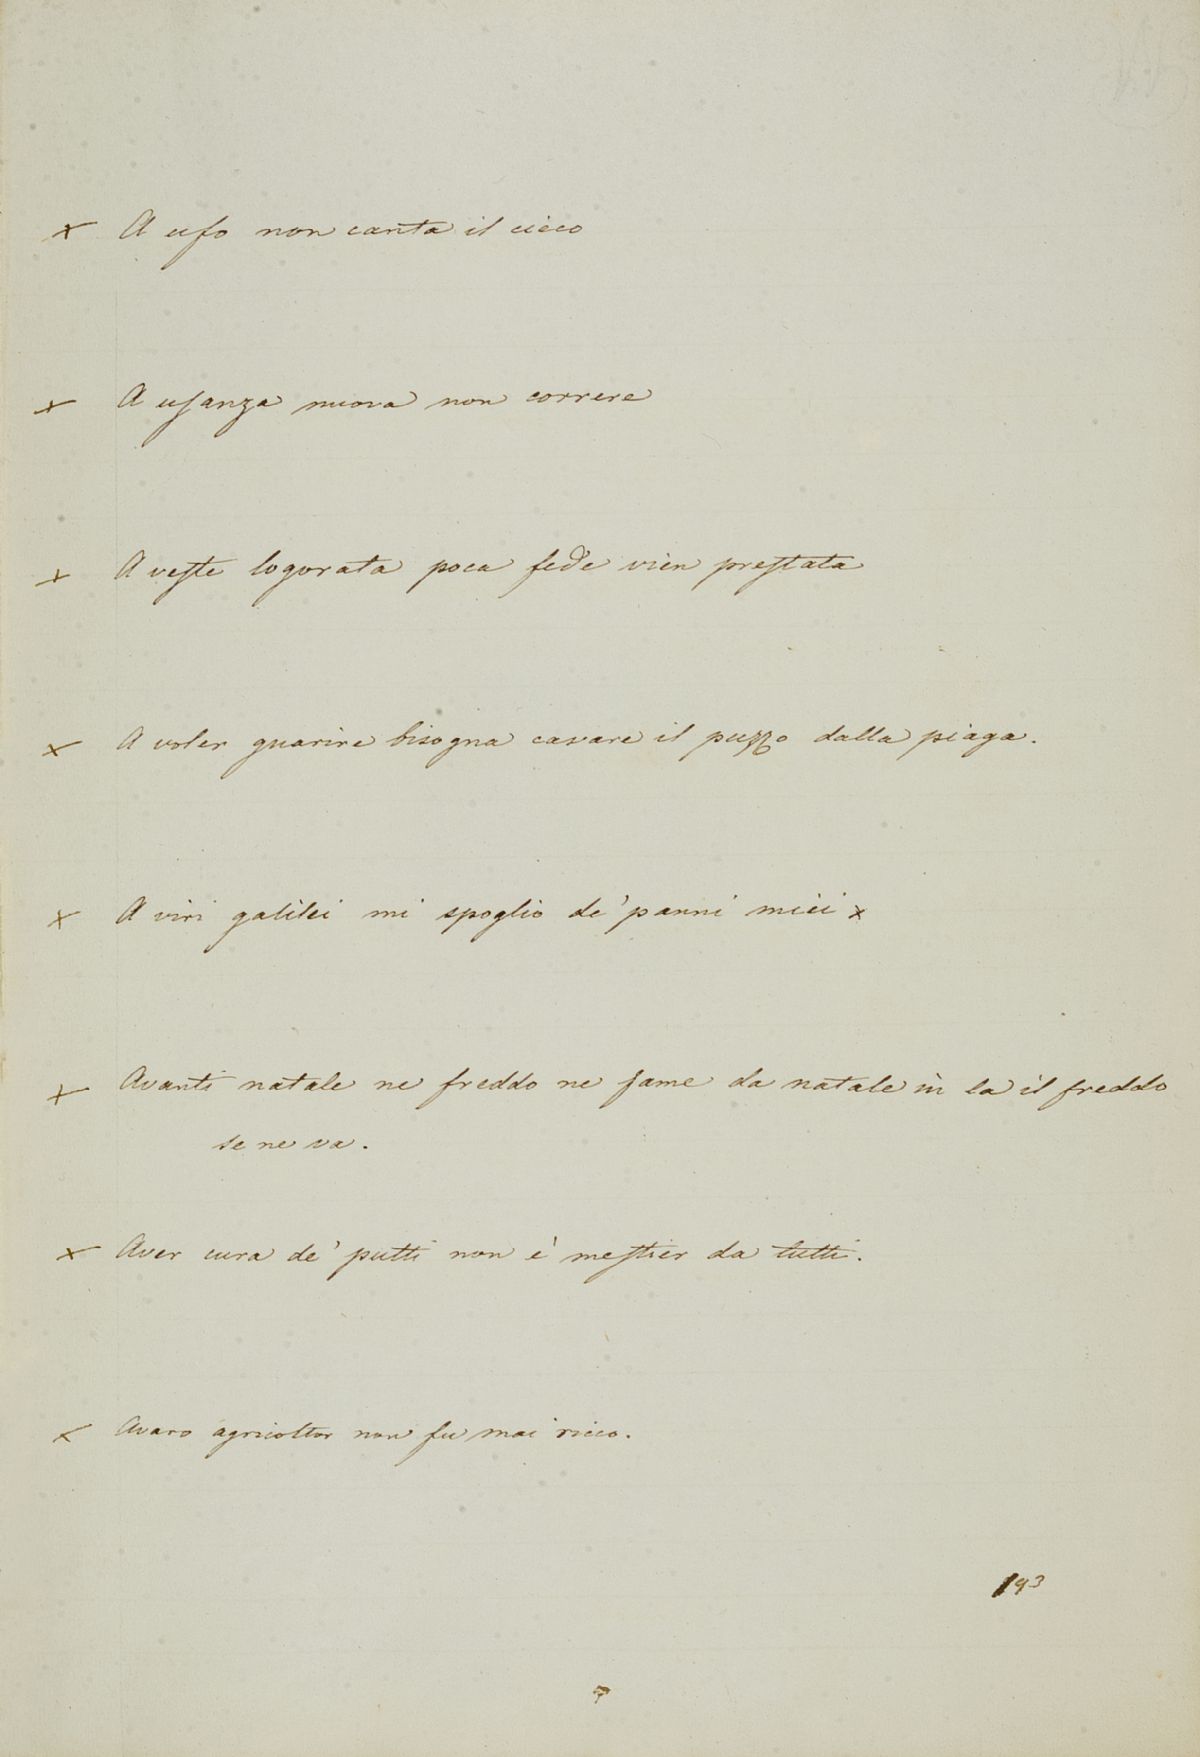 × A ufo non canta il cieco
× A usanza nuova non correre
× A veste logorata poca fede vien prestata
× A voler guarire bisogna cavare il puzzo dalla piaga.
× A viri galilei mi spoglio de' panni miei ×
× Avanti natale ne freddo ne fame da natale in la il freddo
se ne va.
× Aver cura de' putti non è mestier da tutti.
× Avaro agricoltor non fu mai ricco.
193
7